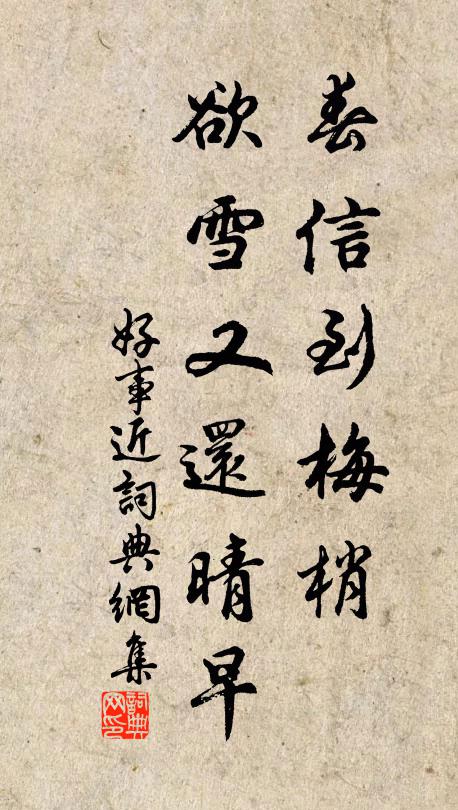 春信到梅梢
欲雪又還晴早
好事近詞典網集
詞典
网印